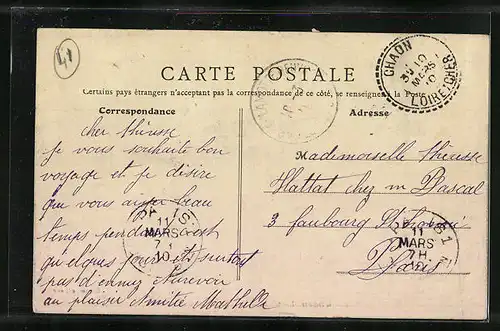 41
CARTE POSTALE
Certains pays étrangers n'acceptant pas la correspondance de ce côté, se renseigner à la Poste
Correspondance
Adresse
CHAON
3 10
MARS
10
LOIR-ET-CHER
cher thérèsse
je vous souhaite bon
voyage et je désire
que vous aiyer beau
temps pendant
quelques jours et surtout
pas d'ennuy Aurevoir
au plaisir Amitié Mathilde
Mademoiselle thérèsse
Hattat chez m Pascal
3 faubourg St
Paris
11
MARS
7
10
11
MARS
7H